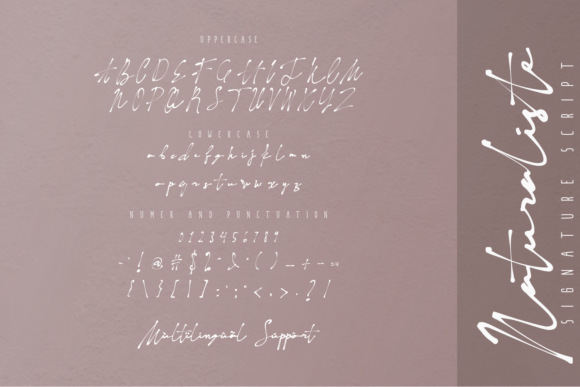 UPPERCASE
A B C D E F G H I J K L M
N O P Q R S T U V W X Y Z
LOWERCASE
a b c d e f g h i j k l m n
o p q r s t u v w x y z
NUMER AND PUNCTUATION
0 1 2 3 4 5 6 7 8 9
{ \ } [ ] : ; " < , > . ? /
Multilingual Support
Naturaliste
SIGNATURE SCRIPT